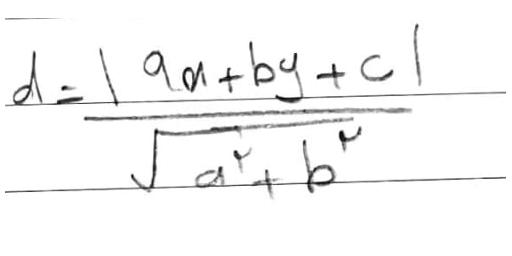 d = |ax+by+c|
√a²+b²